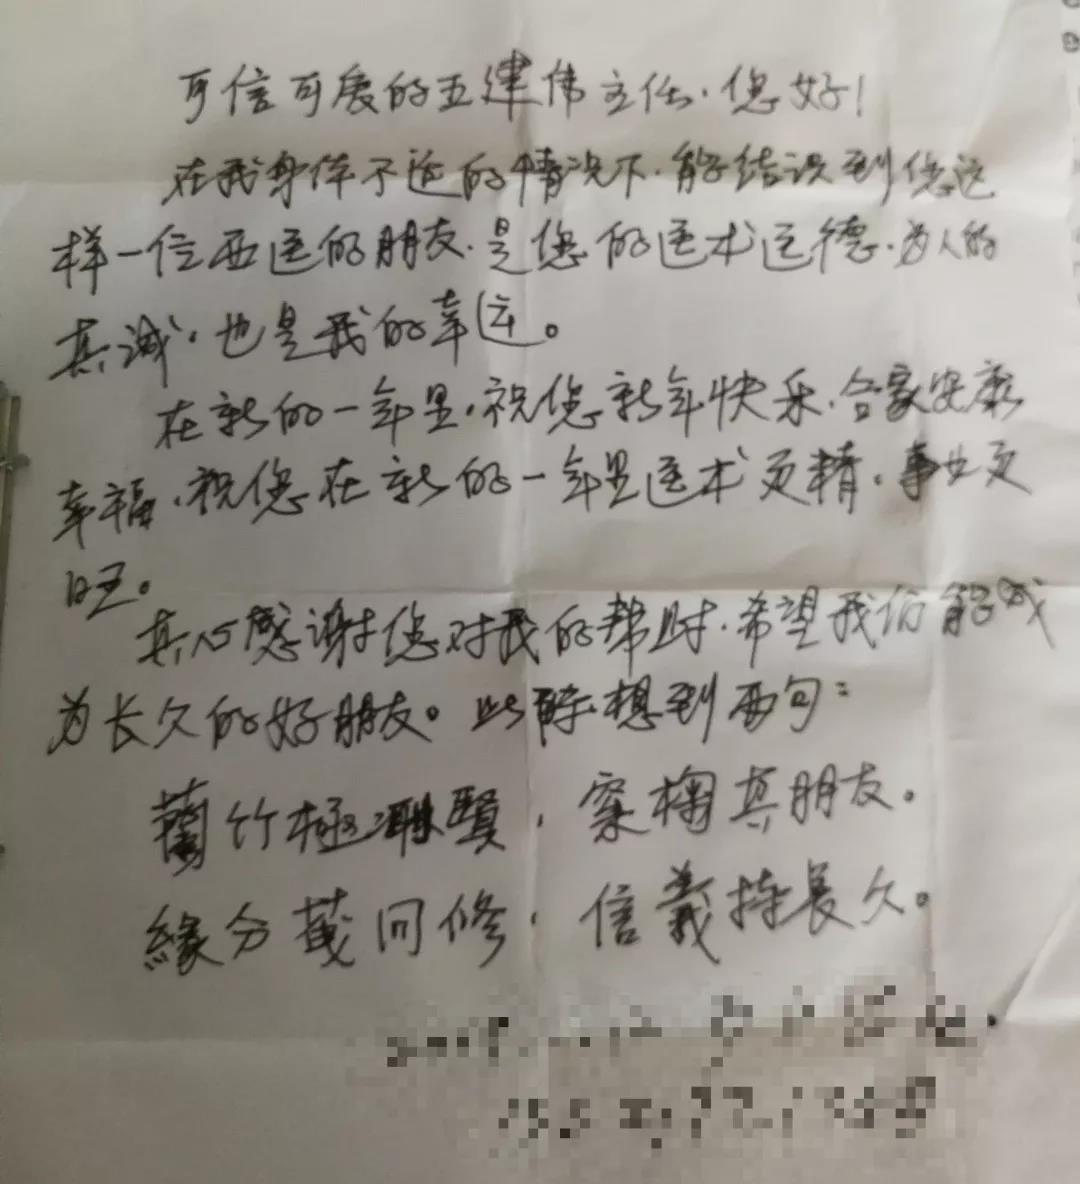 可信可爱的王建伟主任.您好!
在我身体不适的情况下.能结识到您这
样一位西医的朋友.是您的医术医德.为人的
真诚,也是我的幸运。
在新的一年里,祝您新年快乐.合家安康
幸福,祝您在新的一年里医术更精,事业更
旺。
真心感谢您对我的帮助.希望我们能成
为长久的好朋友。此时想到两句:
蘭竹極聯賢,案檎真朋友。
緣分黄同修,信義持長久。